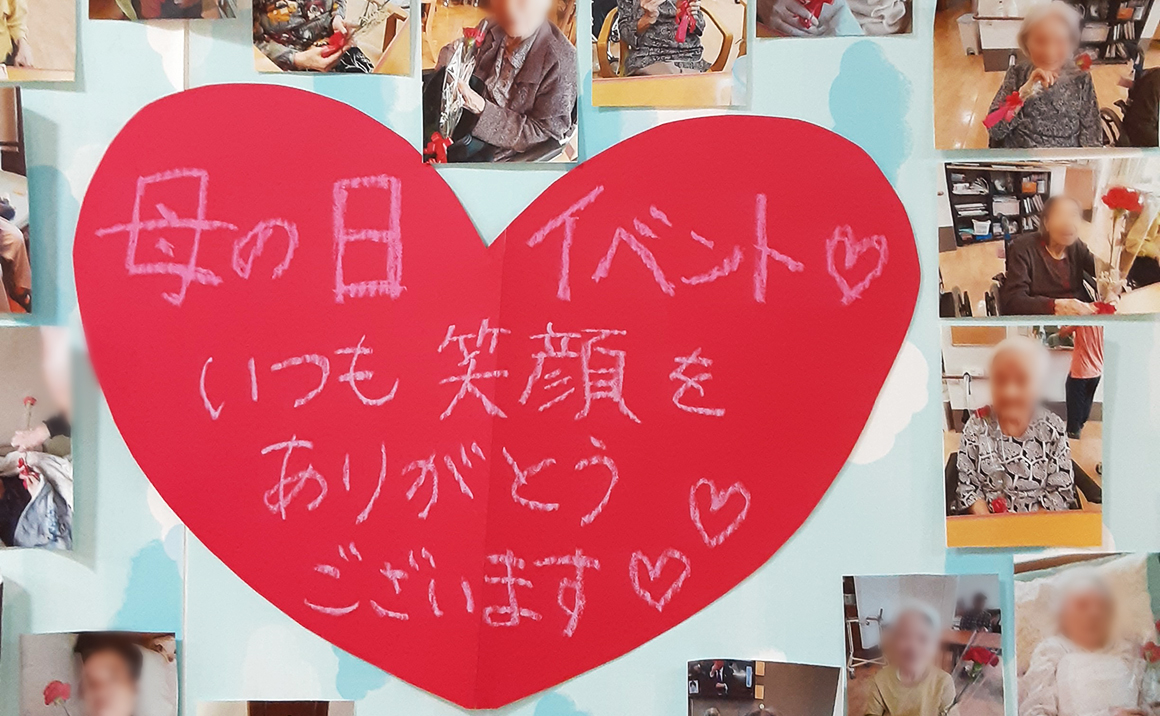 母の日 イベント♡
いつも笑顔を
ありがとう
ございます♡♡